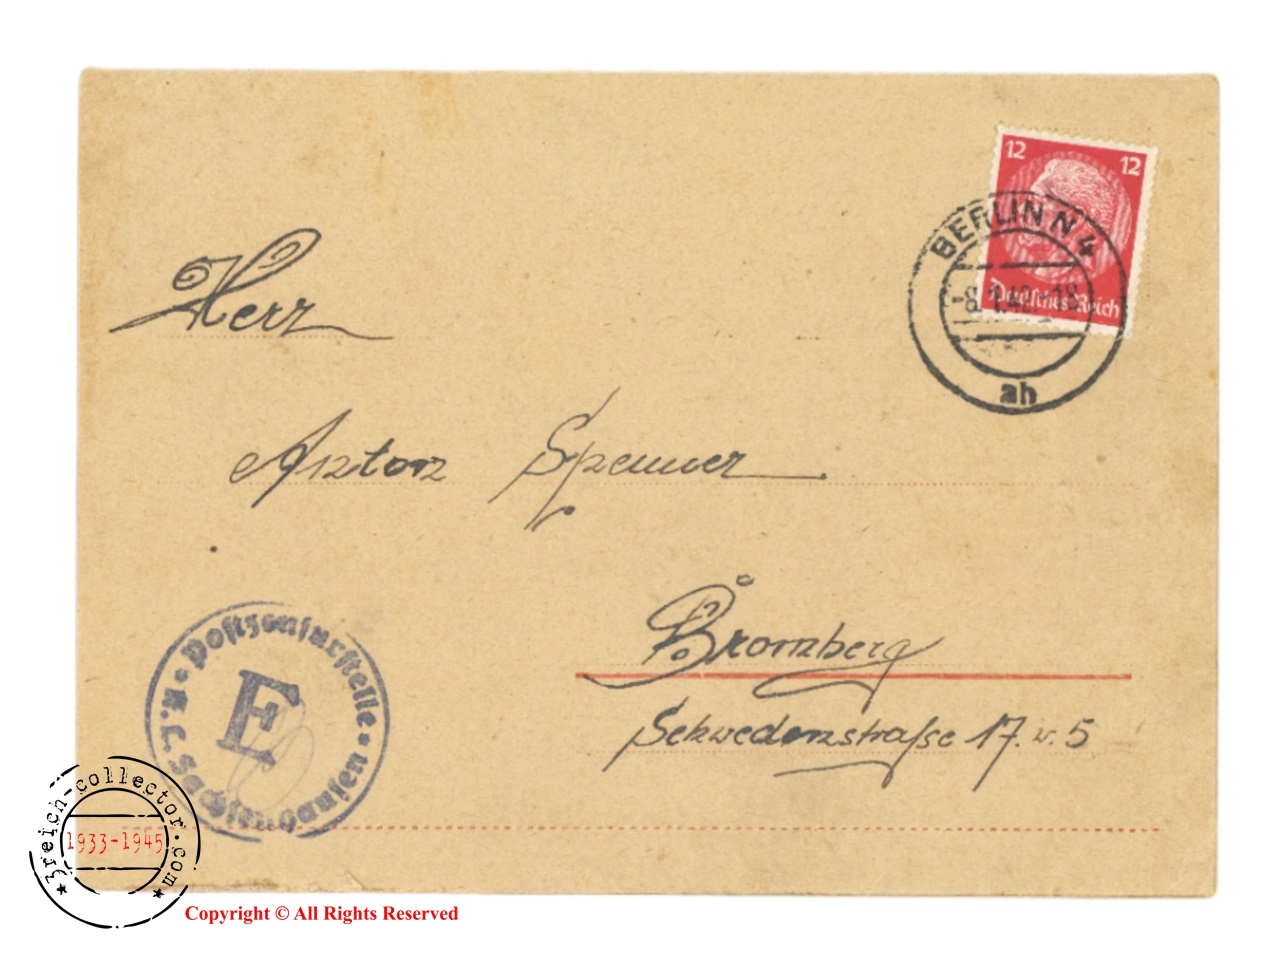 12 12
Deutsches Reich
BERLIN N 4
-8.1.40.-18
ah
Herr
Anton Spenner
Bromberg
Schwedenstraße 17. w. 5
Postzensurstelle
E
3reich-collector.com
1933-1945
Copyright © All Rights Reserved